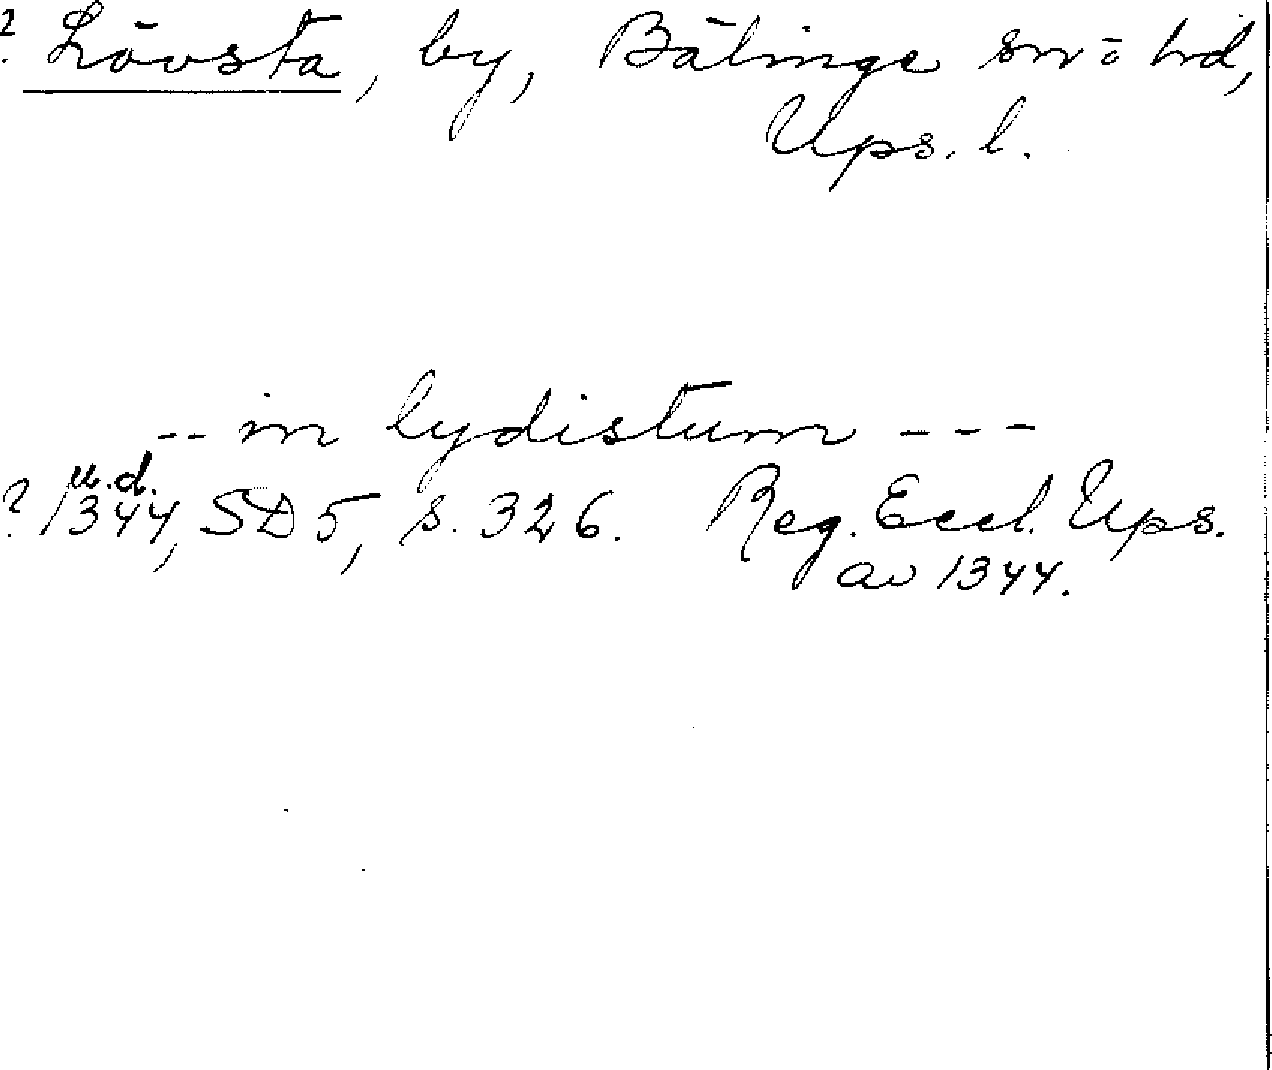 ? Lövsta, by, Bälinge sn o hd,
Ups. l.
-- in lydistum ---
u.d.
? 1344, SD 5, s. 326. Reg. Eccl. Ups.
av 1344.